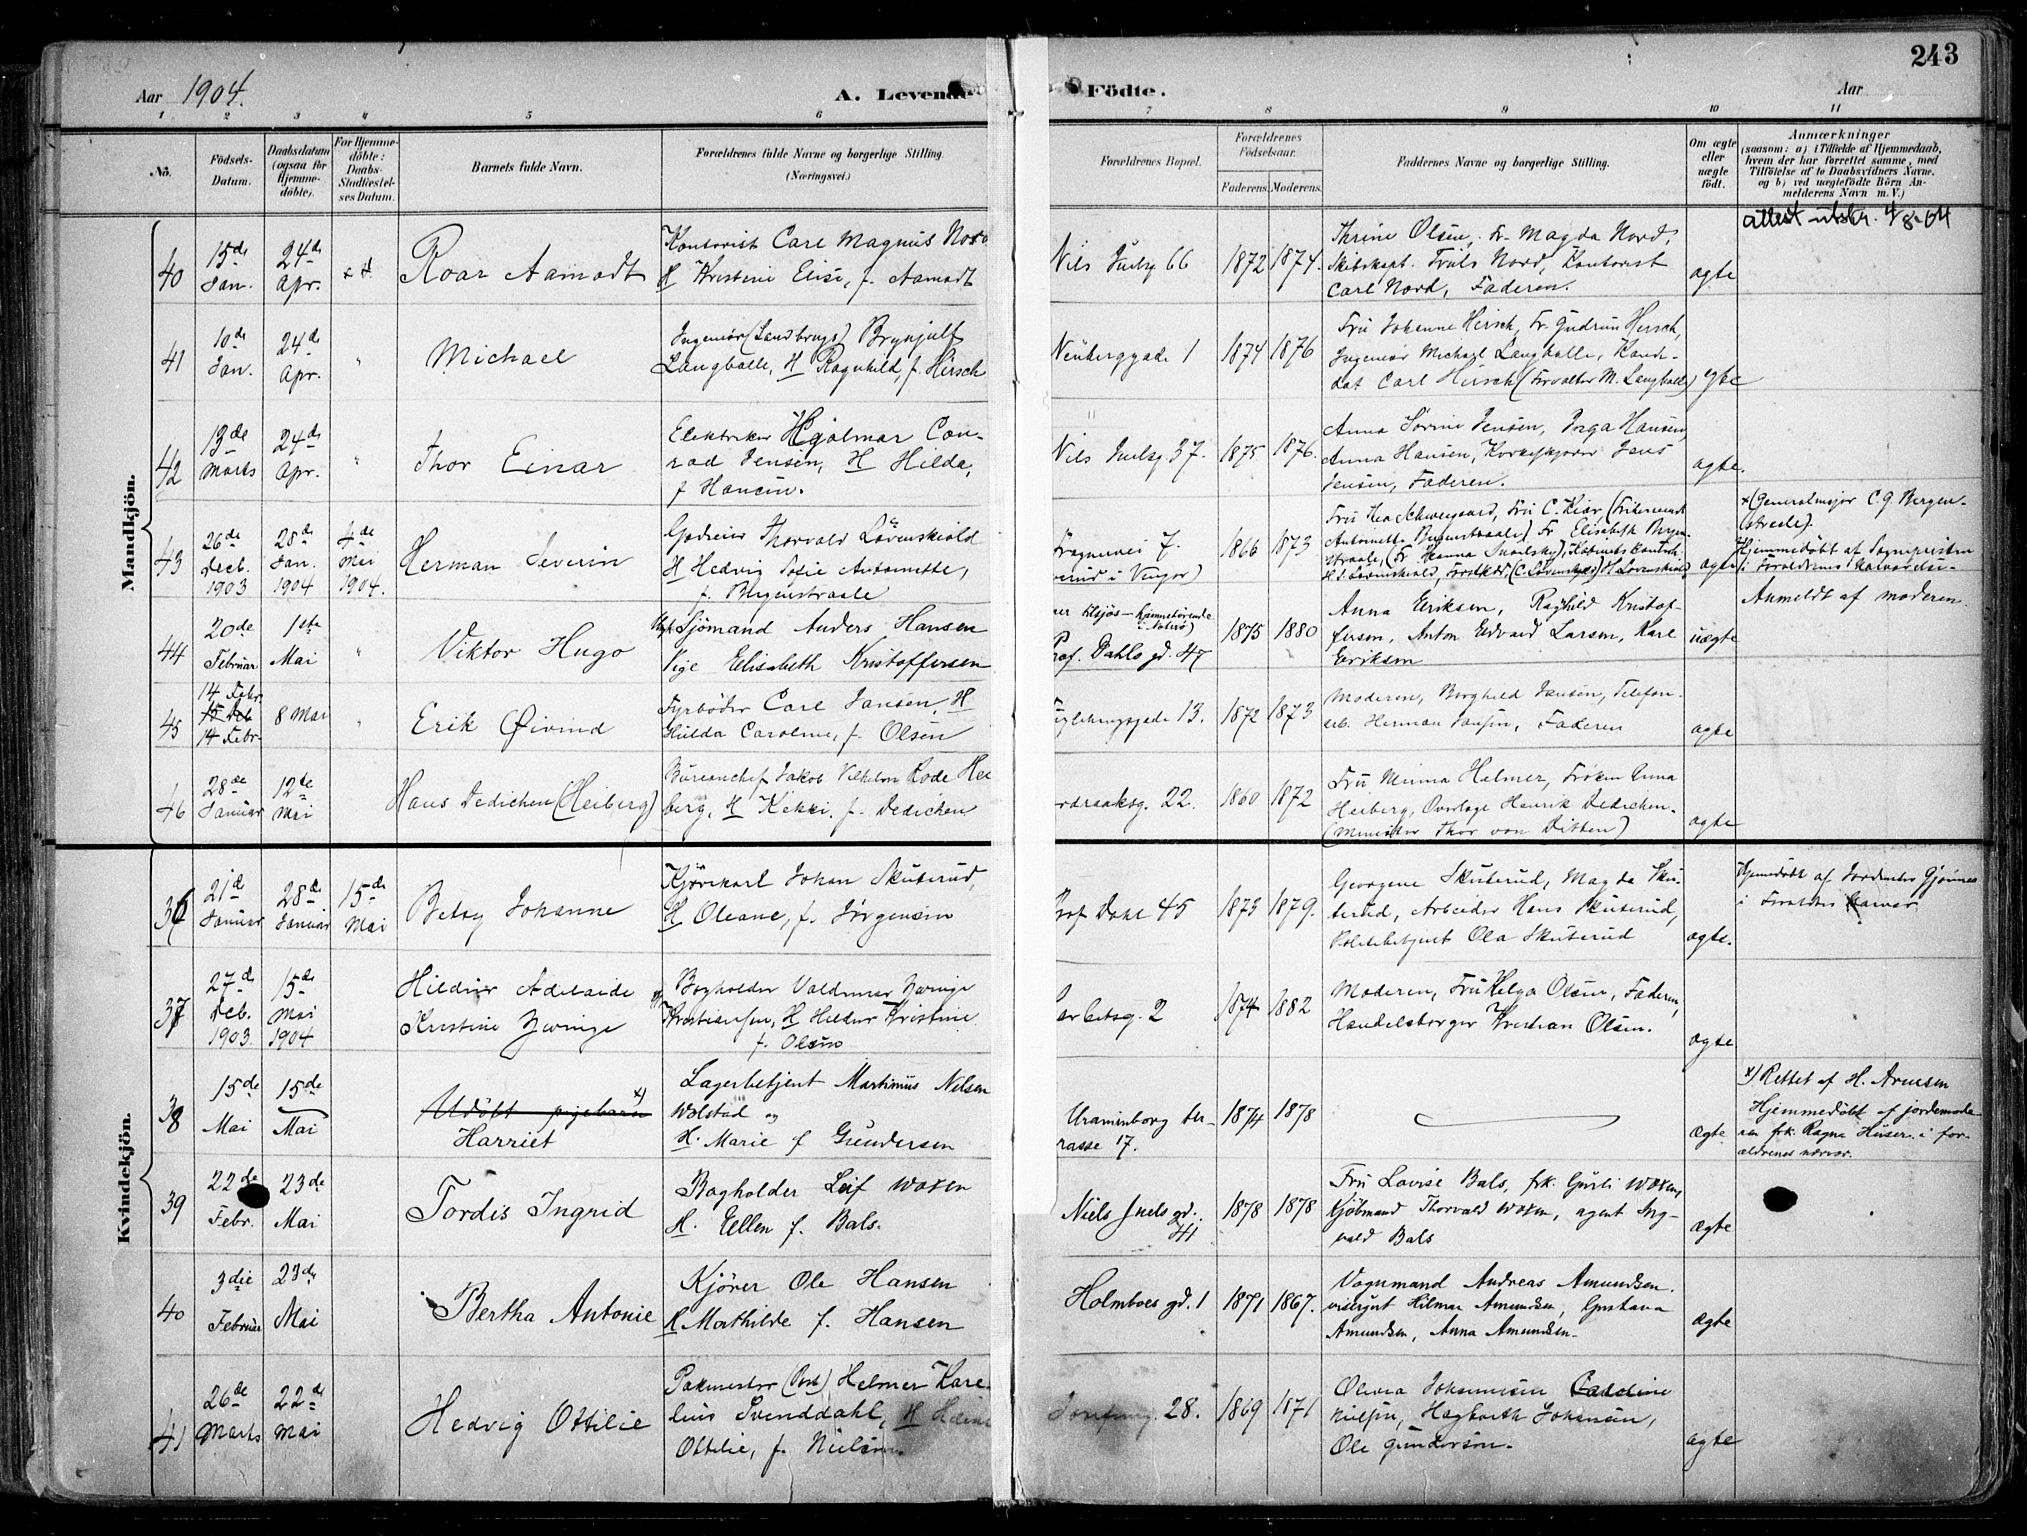 243
Aar 1904.
A. Levende Födte.
Aar
1 2 3 4 5 6 7 8 9 10 11
No.
Födsels-Datum.
Daabsdatum (ogsaa for Hjemme-döbte).
For Hjemme-döbte: Daabs-Stadfæstel-ses Datum.
Barnets fulde Navn.
Forældrenes fulde Navne og borgerlige Stilling.
(Næringsvei.)
Forældrenes Bopæl.
Forældrenes Födselsaar.
Faderens. Moderens.
Faddernes Navne og borgerlige Stilling.
Om ægte eller uægte födt.
Anmærkninger
(saasom: a) i Tilfælde af Hjemmedaab, hvem der har forrettet samme, med Tilföielse af to Daabsvidners Navne, og b) ved uægtefödte Börn Anmelderens Navn m. V.)
Mandkjön.
40
15de Jan.
24de Apr.
Roar Aamodt
Kontorist Carl Magnus Nord
H Kristine Elise, f. Aamodt
Nils Juelsg 66
1872 1874.
Thrine Olsen, Fr. Magda Nord,
Skibskapt. Truls Nord, Kontorist
Carl Nord, Faderen.
ægte
attest utskr. 4/8-64
41
10de Jan.
24de Apr.
Michael
Ingeniør (Landbrugs) Brynjulf
Langballe, H Ragnhild, f. Hirsch
Neuberggade 1
1874 1876
Fru Johanne Hirsch, Fr. Gudrun Hirsch,
Ingeniør Michael Langballe, Kandi-
dat Carl Hirsch (Forvalter M. Langballe)
ægte
42
13de Marts
24de Apr.
Thor Einar
Elektriker Hjalmar Con-
rad Jensen, H Hilda,
f Hansen.
Nils Juelsg 37.
1875 1876.
Anna Sørine Jensen, Borga Hansen,
Anna Hansen, Jens
Jensen, Faderen.
ægte.
43
26de Decb. 1903
28de Jan. 1904
4de Mai 1904.
Herman Severin
Godseier Thorvald Løvenskiold
H Hedvig Sofie Antoinette,
f. Bergenstraale
7.
1866 1873
ægte
x (Generalmajor C. G. Bergen-
straale).
Hjemmedøbt af Sognepresten
i Forældrenes Nærværelse.
44
20de Februar
1ste Mai
Viktor Hugo
Sjömand Anders Hansen
Pige Elisabeth Kristoffersen
tilsjös - hjemmehörende
Prof. Dahls gd. 47
1875 1880
Anna Eriksen, Raghild Kristof-
fersen, Anton Edvard Larsen, Karl
Eriksen
uægte
Anmeldt af moderen.
45
14 Febr.
14 Febr.
8 Mai
Erik Øivind
Fyrbøder Carl Jansen, H
Hulda Caroline, f. Olsen
13.
1872 1873
Moderen, Borghild Jansen, Telefon-
arb. Herman Jansen, Faderen
ægte
46
28de Januar
12te Mai
Hans Dedichen (Heiberg)
Bureauchef Jakob Vilhelm Rode Hei
berg, H Kikki, f. Dedichen
22.
1860 1872
Fru Minna Halmer, Frøken Anna
Heiberg, Overlæge Henrik Dedichen.
(Minister Thor von Ditten)
ægte
Kvindekjön.
36
21d Januar
28de Januar
15de Mai
Betsy Johanne
Kjørekarl Johan Skuterud,
H Oleane, f. Jørgensen
Prof Dahl 45
1873 1879.
Georgine Skuterud, Magda Sku-
terud, Arbeider Hans Skuterud,
Politibetjent Ola Skuterud
ægte.
Hjemmedøbt af Jordemoder Gjønnes
i Foreldres Nærvær.
37
27de Decb. 1903
15de Mai 1904
Hildur Adelaide
Kristine Zwinge
Bogholder Valdemar Zwinge
Kristiansen, H Hildur Kristine
f. Olsen
2
1874 1882
Moderen, Fru Helga Olsen, Faderen,
Handelsborger Kristian Olsen.
ægte
38
15de Mai
15de Mai
Udøbt pigebarn x)
Harriet
Lagerbetjent Martinius Nilsen
Wolstad og
H. Marie f Gundersen
Uranienborg ter-
rasse 17.
1874 1878
ægte
x) Rettet af H. Arnesen
Hjemmedöbt af jordemode-
ren frk. Ragna Huser i for-
ældrenes nærvær.
39
22de Febr.
23de Mai
Tordis Ingrid
Bogholder Leif Woxen
H. Ellen f. Bals.
Niels Juels gd.
41
1878 1878
Fru Lovise Bals, frk. Gurli Woxen,
Kjöbmand Thorvald Woxen, agent Ing-
vald Bals
ægte
40
3die Februar
23de Mai
Bertha Antonie
Kjörer Ole Hansen
H Mathilde f. Hansen
Holmboes gd. 1
1871 1867.
Vognmand Andreas Amundsen.
visergut Hilmar Amundsen, Gustava
Amundsen, Anna Amundsen.
ægte
41
26de Marts
22de Mai
Hedvig Ottilie
Pakmester (Post) Helmer Kare-
lius Svenddahl, H
Ottilie, f. Nielsen.
28.
1869 1871
Olivia Johannesen
Nielsen, Hagbarth Johansen,
Ole Gundersen.
ægte